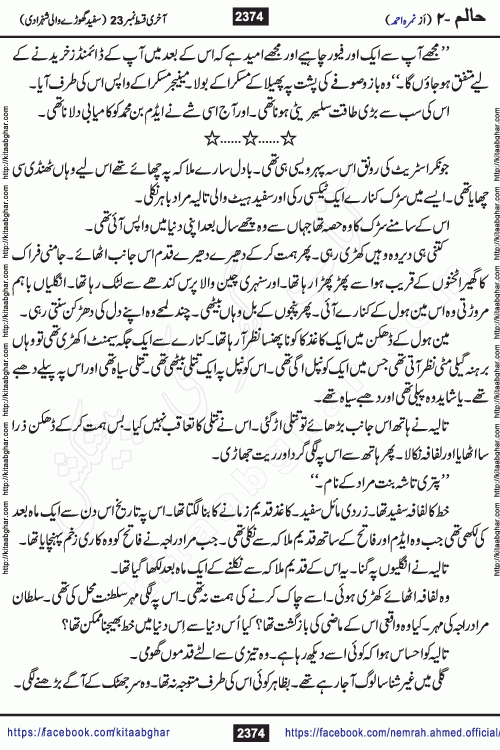 حالم -۲ (از نمرہ احمد) 2374 آخری قسط نمبر 23 (سفید گھوڑے والی شہزادی)
’’مجھے آپ سے ایک اور فیور چاہیے اور مجھے امید ہے کہ اس کے بعد میں آپ کے ڈائمنڈز خریدنے کے
لیے متفق ہو جاؤں گا۔‘‘ وہ بازو صوفے کی پشت پہ پھیلا کے مسکرا کے بولا۔ مینیجر مسکرا کے واپس اس کی طرف آیا۔
اس کی سب سے بڑی طاقت سلیبریٹی ہونا تھی۔ اور آج اسی شے نے ایڈم بن محمد کو کامیابی دلانا تھی۔
☆......☆......☆
جونکر اسٹریٹ کی رونق اس سہ پہر ویسی ہی تھی۔ بادل سارے ملاکہ پہ چھائے تھے اس لیے وہاں ٹھنڈی سی
چھایا تھی۔ ایسے میں سڑک کنارے ایک ٹیکسی رکی اور سفید ہیٹ والی تالیہ مراد باہر نکلی۔
اس کے سامنے سڑک کا وہ حصہ تھا جہاں سے وہ چھے سال بعد اپنی دنیا میں واپس آئی تھی۔
کتنی ہی دیر وہ وہیں کھڑی رہی۔ پھر ہمت کر کے دھیرے دھیرے قدم اس جانب اٹھائے۔ جامنی فراک
کا گھیر ٹخنوں کے قریب ہوا سے پھڑپھڑا رہا تھا۔ اور سنہری چین والا پرس کندھے سے لٹک رہا تھا۔ انگلیاں باہم
مروڑتی وہ اس مین ہول کے کنارے آئی۔ پھر پنجوں کے بل وہاں بیٹھی۔ چند لمحے وہ اپنے دل کی دھڑکن سنتی رہی۔
مین ہول کے ڈھکن میں ایک کاغذ کا کونا پھنسا نظر آ رہا تھا۔ کنارے سے ایک جگہ سیمنٹ اکھڑی تھی تو وہاں
برہنہ گیلی مٹی نظر آتی تھی جس میں ایک کونپل اگی تھی۔ اس کونپل پہ ایک تتلی بیٹھی تھی۔ تتلی سیاہ تھی اور اس پہ پیلے دھبے
تھے۔ یا شاید وہ پیلی تھی اور دھبے سیاہ تھے۔
تالیہ نے ہاتھ اس جانب بڑھائے تو تتلی اڑ گئی۔ اس نے تتلی کا تعاقب نہیں کیا۔ بس ہمت کر کے ڈھکن ذرا
سا اٹھایا اور لفافہ نکالا۔ پھر ہاتھ سے اس پہ لگی گرد اور ریت جھاڑی۔
’’پتری تاشہ بنت مراد کے نام۔‘‘
خط کا لفافہ سفید تھا۔ زردی مائل سفید۔ کاغذ قدیم زمانے کا بنا لگتا تھا۔ اس پہ تاریخ اس دن سے ایک ماہ بعد
کی لکھی تھی جب وہ ایڈم اور فاتح کے ساتھ قدیم ملاکہ سے نکلی تھی۔ جب مراد راجہ نے فاتح کو وہ کاری زخم پہنچایا تھا۔
تالیہ نے انگلیوں پہ گنا۔ یہ اس کے قدیم ملاکہ سے نکلنے کے ایک ماہ بعد لکھا گیا تھا۔
وہ لفافہ اٹھائے کھڑی ہوئی۔ اسے چاک کرنے کی ہمت نہ تھی۔ اس پہ لگی مہر سلطنت محل کی تھی۔ سلطان
مراد راجہ کی مہر۔ کیا وہ واقعی اس کے ماضی کی بازگشت تھا؟ کیا اُس دنیا سے اِس دنیا میں خط بھیجنا ممکن تھا؟
تالیہ کو احساس ہوا کہ کوئی اسے دیکھ رہا ہے۔ وہ تیزی سے الٹے قدموں گھومی۔
گلی میں غیر شناسا لوگ آ جا رہے تھے۔ بظاہر کوئی اس کی طرف متوجہ نہ تھا۔ وہ سر جھٹک کے آگے بڑھنے لگی۔
https://facebook.com/kitaabghar 2374 https://facebook.com/nemrah.ahmed.official/
http://kitaabghar.com http://kitaabghar.com http://kitaabghar.com http://kitaabghar.com http://kitaabghar.com
http://kitaabghar.com http://kitaabghar.com http://kitaabghar.com http://kitaabghar.com http://kitaabghar.com